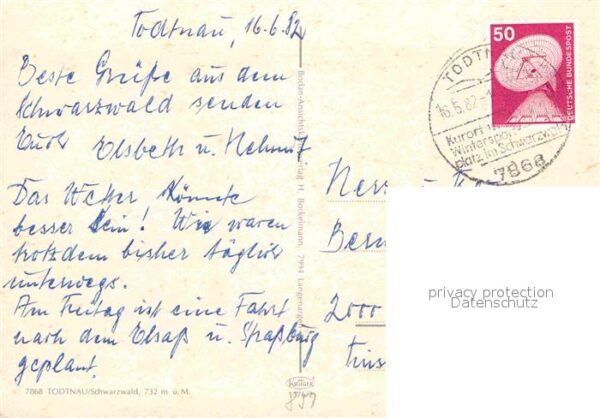 Todtnau, 16.6.82
Beste Grüße aus dem
Schwarzwald senden
Euch Elsbeth u. Helmut
Das Wetter könnte
besser sein! Wir waren
trotzdem bisher täglich
unterwegs.
Am Freitag ist eine Fahrt
nach dem Elsaß u. Straßburg
geplant.
7868 TODTNAU/Schwarzwald, 732 m ü. M.
Verlag H. Bockelmann, 7994 Langenargen
50
DEUTSCHE BUNDESPOST
TODTNAU
16.6.82
Kurort
Wintersport
Platz im Schwarzwald
7868
2000
privacy protection
Datenschutz